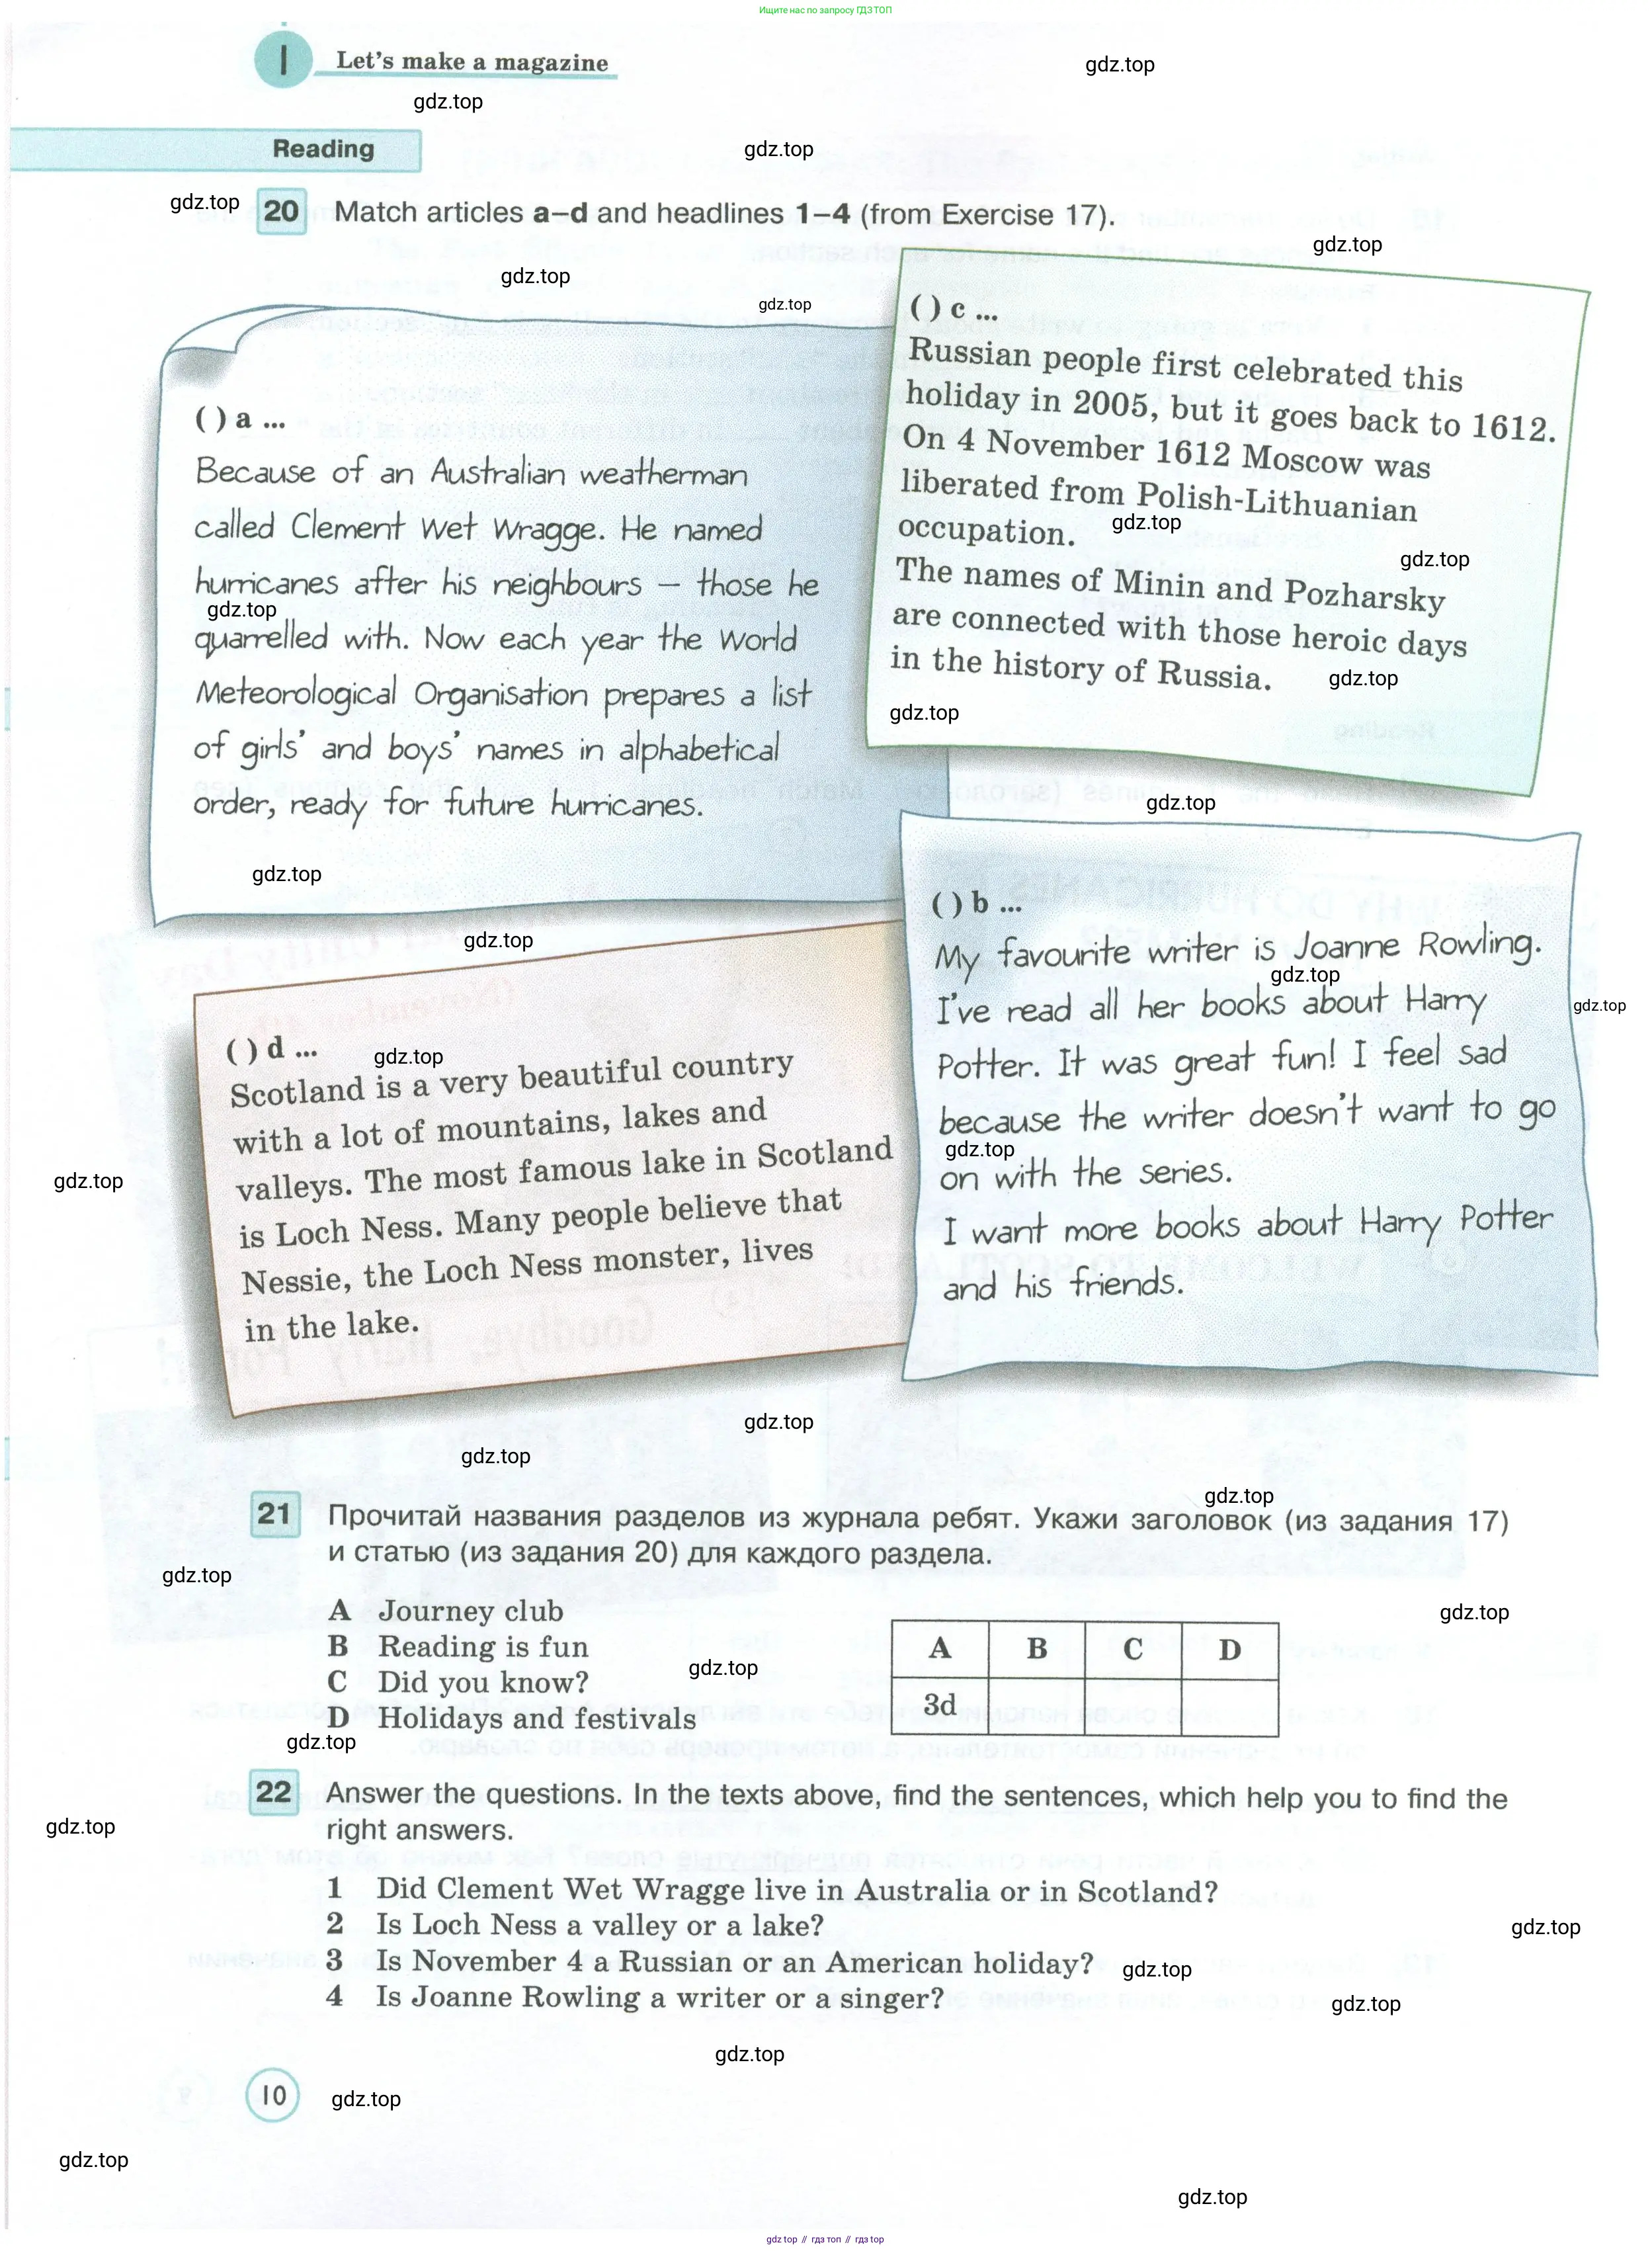 Ищите нас по запросу ГДЗ ТОП
1 Let's make a magazine
gdz.top
gdz.top
Reading
gdz.top
gdz.top
20 Match articles a–d and headlines 1–4 (from Exercise 17).
gdz.top
gdz.top
gdz.top
( ) a ...
Because of an Australian weatherman
called Clement Wet Wragge. He named
hurricanes after his neighbours – those he
gdz.top
quarrelled with. Now each year the World
Meteorological Organisation prepares a list
of girls' and boys' names in alphabetical
order, ready for future hurricanes.
gdz.top
( ) c ...
Russian people first celebrated this
holiday in 2005, but it goes back to 1612.
On 4 November 1612 Moscow was
liberated from Polish-Lithuanian
occupation.
gdz.top
gdz.top
The names of Minin and Pozharsky
are connected with those heroic days
in the history of Russia.
gdz.top
gdz.top
gdz.top
gdz.top
( ) d ...
gdz.top
Scotland is a very beautiful country
with a lot of mountains, lakes and
valleys. The most famous lake in Scotland
is Loch Ness. Many people believe that
Nessie, the Loch Ness monster, lives
in the lake.
gdz.top
( ) b ...
My favourite writer is Joanne Rowling.
gdz.top
gdz.top
I've read all her books about Harry
Potter. It was great fun! I feel sad
because the writer doesn't want to go
gdz.top
on with the series.
I want more books about Harry Potter
and his friends.
gdz.top
gdz.top
gdz.top
21 Прочитай названия разделов из журнала ребят. Укажи заголовок (из задания 17)
и статью (из задания 20) для каждого раздела.
gdz.top
A Journey club
B Reading is fun
C Did you know?
D Holidays and festivals
gdz.top
gdz.top
gdz.top
A B C D
3d
22 Answer the questions. In the texts above, find the sentences, which help you to find the
right answers.
gdz.top
1 Did Clement Wet Wragge live in Australia or in Scotland?
2 Is Loch Ness a valley or a lake?
gdz.top
3 Is November 4 a Russian or an American holiday?
gdz.top
4 Is Joanne Rowling a writer or a singer?
gdz.top
gdz.top
10
gdz.top
gdz.top
gdz.top
gdz top // гдз топ // гдз top